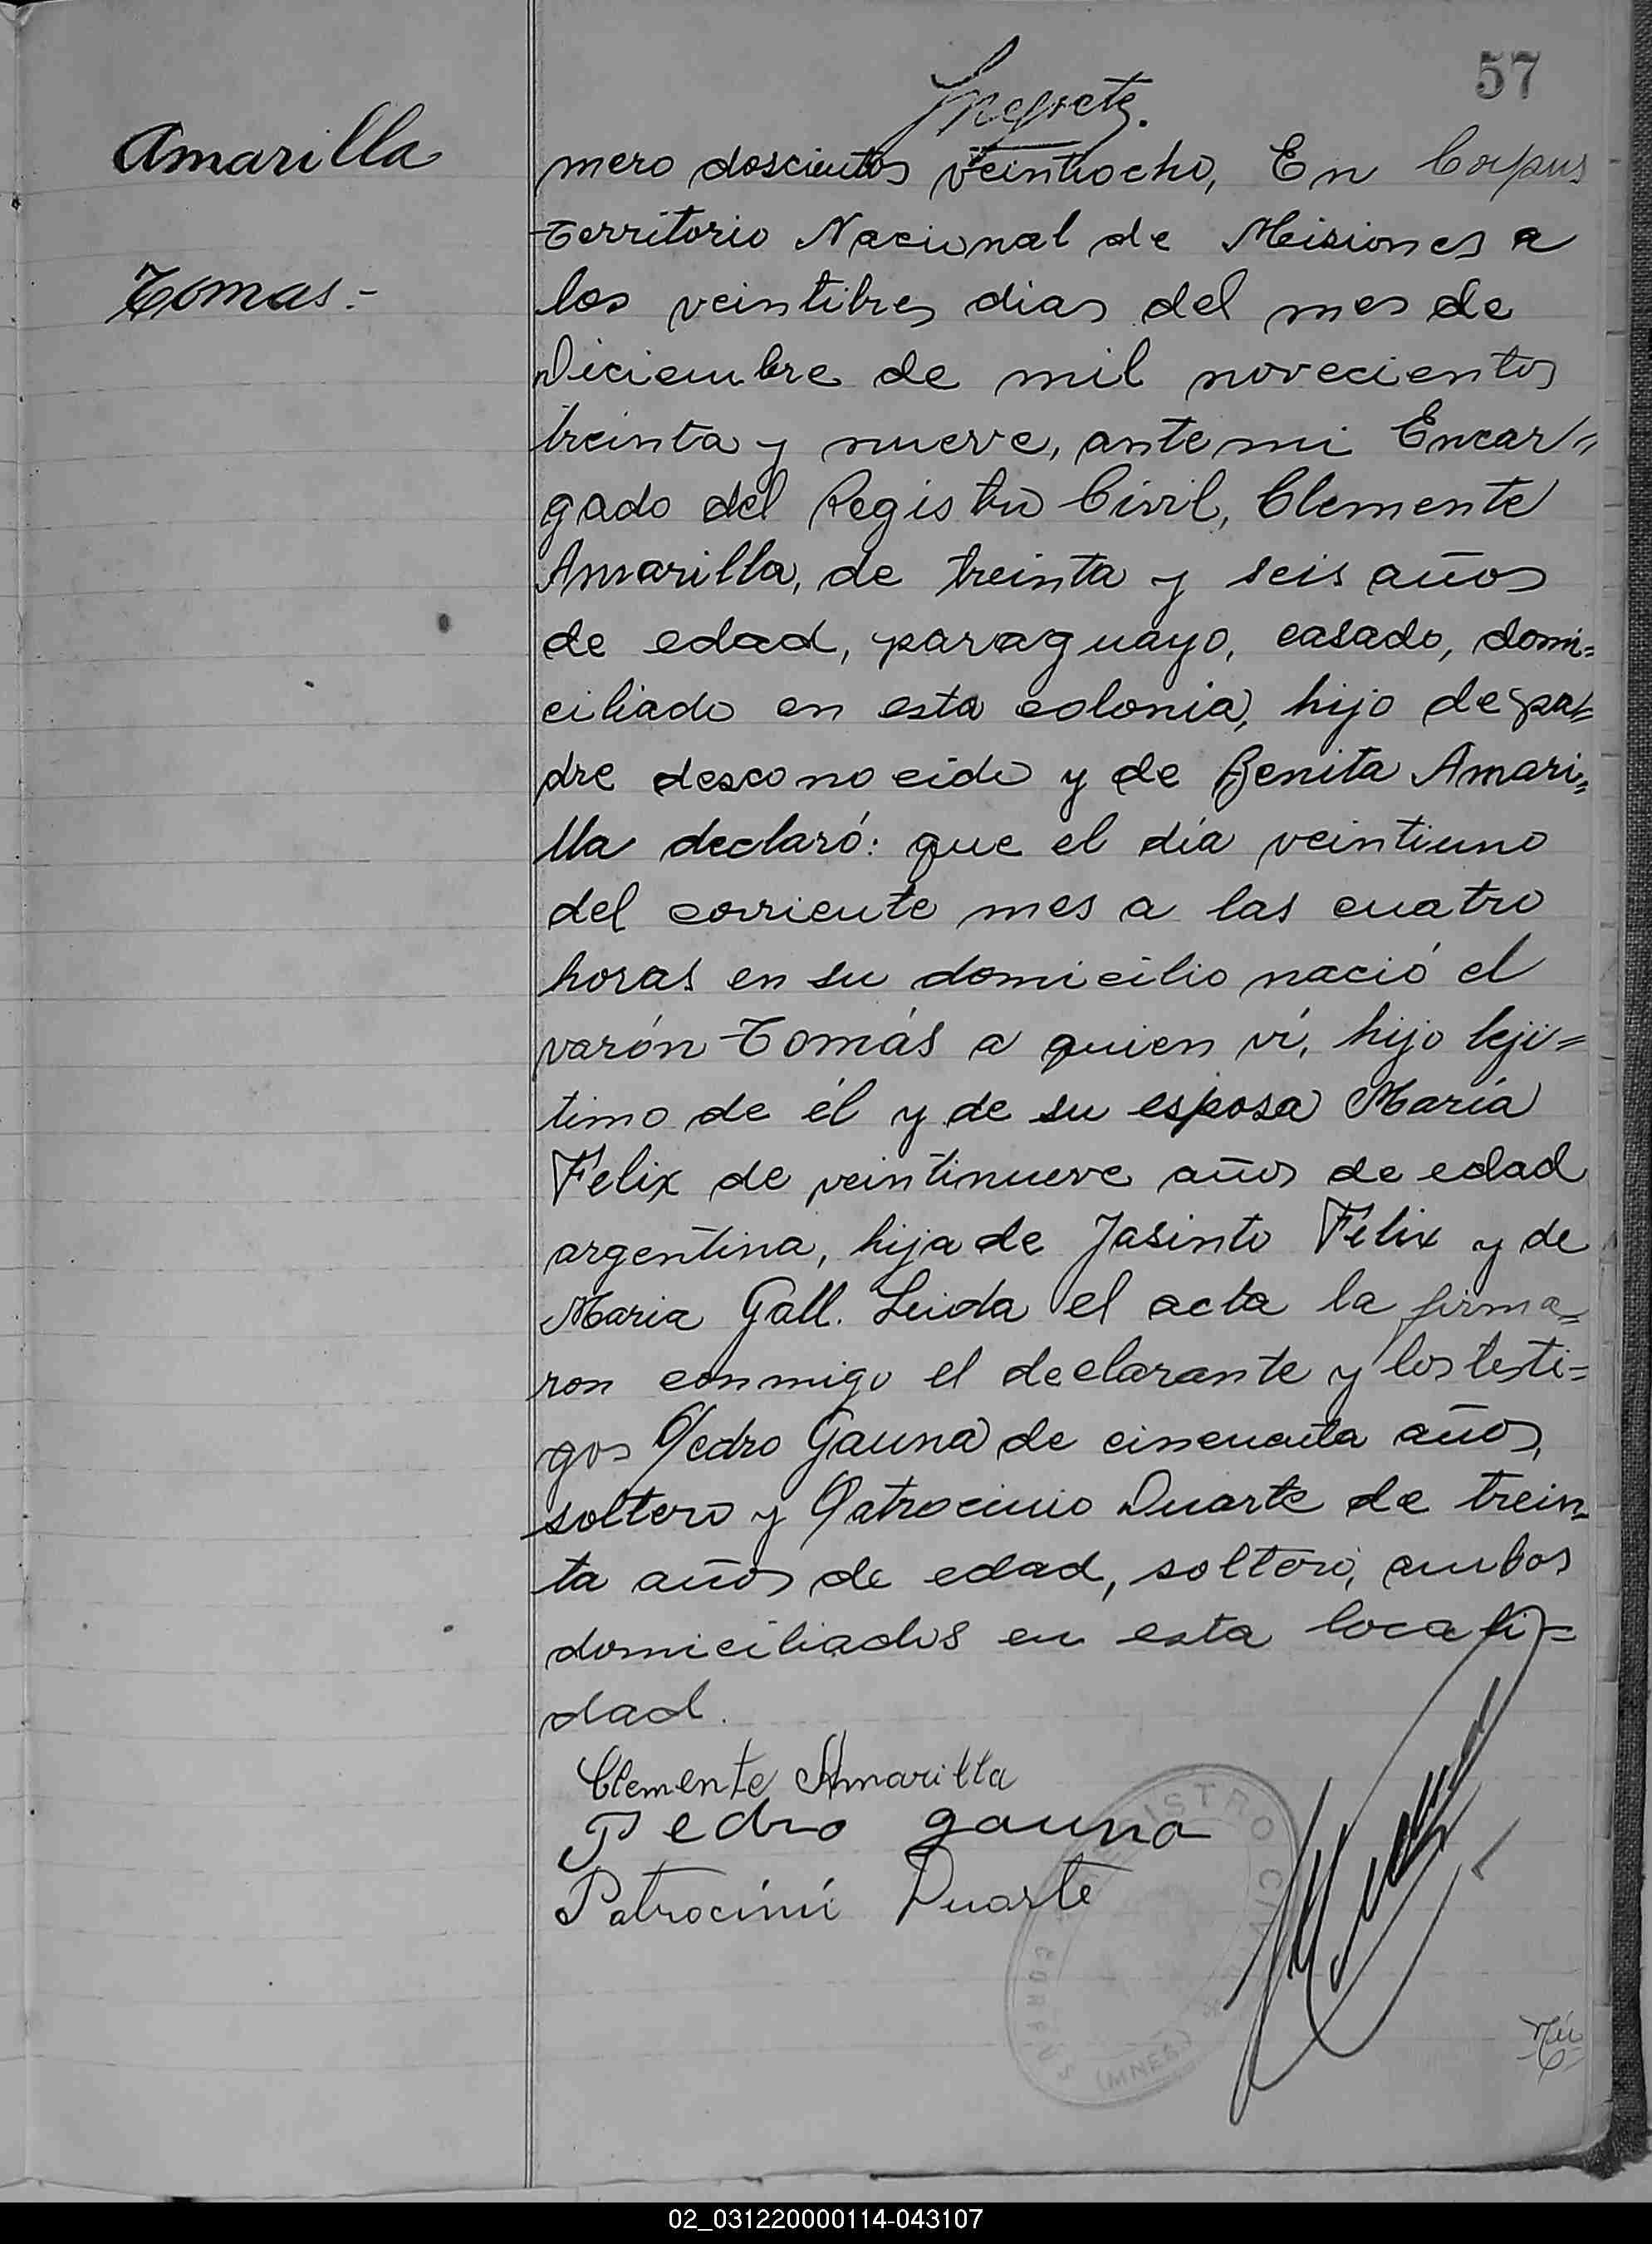 57
Amarilla
Tomas.-
mero doscientos veintiocho, En Corpus
Territorio Nacional de Misiones a
los veintitres dias del mes de
Diciembre de mil novecientos
treinta y nueve, ante mi Encar=
gado del Registro Civil, Clemente
Amarilla, de treinta y seis años
de edad, paraguayo, casado, domi=
ciliado en esta colonia, hijo de pa=
dre desconocido y de Benita Amari=
lla declaró: que el día veintiuno
del corriente mes a las cuatro
horas en su domicilio nació el
varón Tomás a quien ví, hijo leji=
timo de él y de su esposa María
Felix de veintinueve años de edad
argentina, hija de Jasinto Félix y de
Maria Gall. Leida el acta la firma=
ron conmigo el declarante y los testi=
gos Pedro Gauna de cincuenta años,
soltero y Patrocinio Duarte de trein=
ta años de edad, soltero, ambos
domiciliados en esta locali=
dad.
Clemente Amarilla
Pedro gauna
Patrociníi Duarte
REGISTRO CIVIL
CORPUS
(MNES.)
Nú
02_031220000114-043107